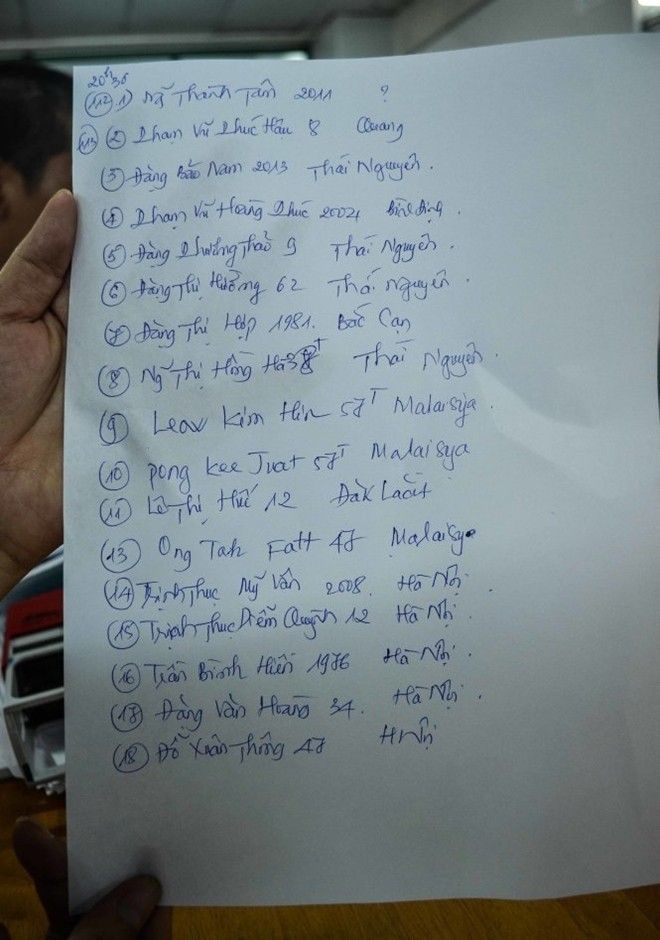 20h30
(112) 1) Ng̃ Thành Tâm 2011 ?
(113) (2) Phạm Vũ Phúc Hậu 8 Quang
(3) Đặng Bảo Nam 2013 Thái Nguyên.
(4) Phạm Vũ Hoàng Phúc 2002 Bình Định.
(5) Đặng Phương Thảo 9 Thái Nguyên.
(6) Đặng Thị Hường 62 Thái Nguyên.
(7) Đặng Thị Hợp 1981. Bắc Cạn
(8) Ng̃ Thị Hồng Hà 38T Thái Nguyên.
(9) Leav Kim Hin 57T Malaisya.
(10) Pong Kee Juat 57T Malaisya
(11) Lê Thị Huế 12 Đăk Lăk
(13) Ong Tah Fatt 47 Malaisya
(14) Trịnh Thục Mỹ Vân 2008. Hà Nội.
(15) Trịnh Thục Diễm Quỳnh 12 Hà Nội.
(16) Trần Bình Hiền 1976 Hà Nội.
(17) Đặng Văn Hoàng 34. Hà Nội.
(18) Đỗ Xuân Thông 47 HNội